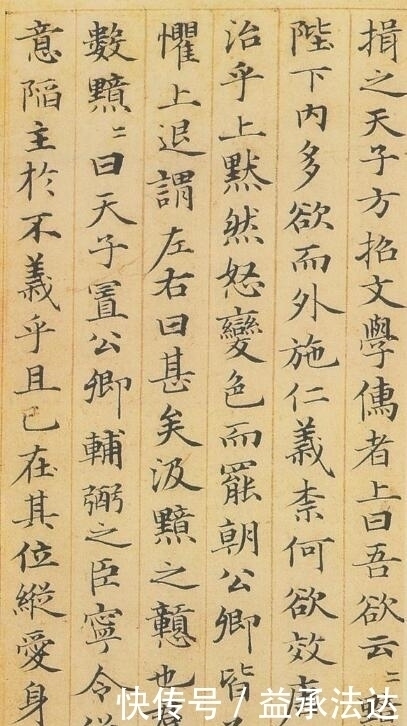 揖之天子方招文學儒者上曰吾欲云〻
陛下内多欲而外施仁義柰何欲效
治乎上黙然怒變色而罷朝公卿皆
懼上退謂左右曰甚矣汲黯之戇也
數黯〻曰天子置公卿輔弼之臣寧令
意陷主於不義乎且已在其位縱愛身
快传号 / 益承法达